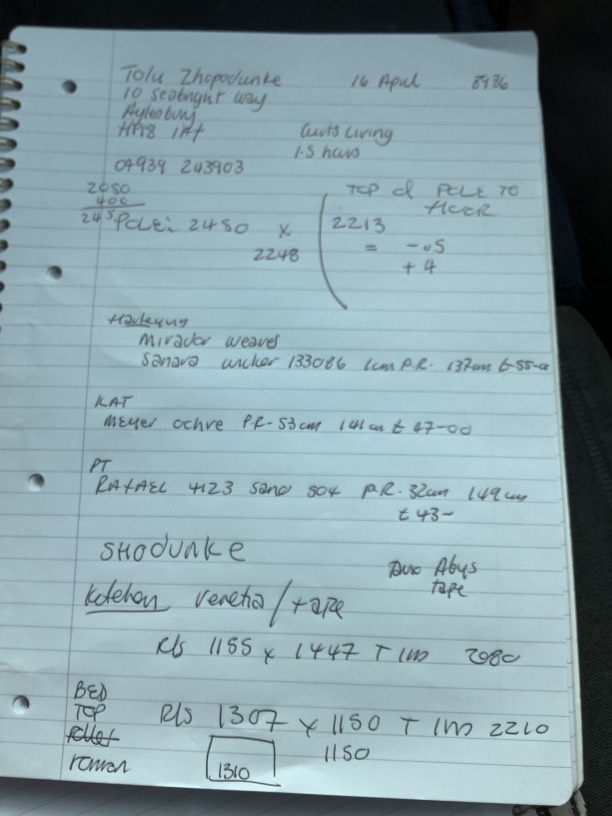 Tolu Zhopodunke 16 April 8936
10 seabright way
Aylesbury
HP18 1AT Curts Living
1.5 hours
07939 243903
2050
400
245 Pole: 2450 x
2248
TOP of POLE TO
FLOOR
2213
= -.05
+ 4
Harlequin
Mirador weaves
133086 1cm P.R. 137cm £55-
KAT
Meyer ochre P.R-53cm 141cm £47-00
PT
RAFAEL 4123 sand 504 P.R.32cm 149cm
£43-
SHODUNKE
Abys
tape
Kitchen venetia/tape
R/s 1155 x 1447 T 1m 2080
BED
TOP R/s 1307 x 1150 T 1m 2210
1150
roman 1310